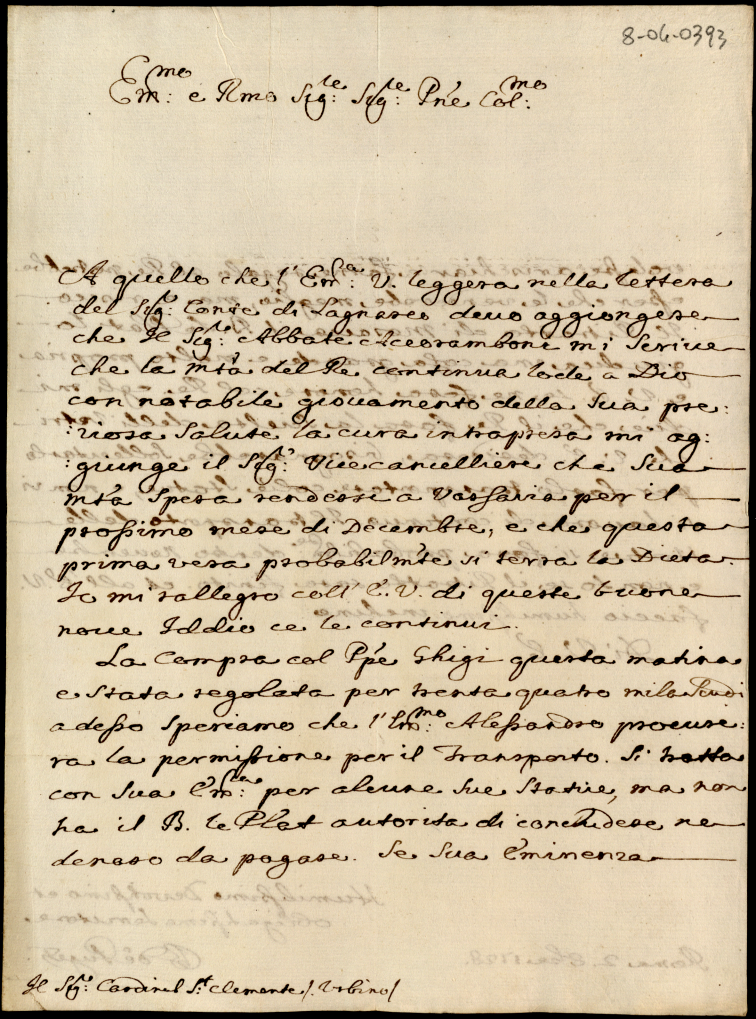 8-04-0393
Em:mo e Rmo Sig:re Sig:re Pñe Col:mo
A quello che l' Em:za V. leggera nella lettera
del Sig:r Conte di Lagnasco devo aggiongere
che Il Sig:r Abbate Acoramboni mi scrive
che la mtà del Re continua lode a Dio
con notabile giovamento della sua pre:
:ziosa salute la cura intrapresa mi ag:
:giunge il Sig:r Vice cancelliere che sua
mtà spera rendersi a Varsavia per il
prossimo mese di Decembre, e che questa
prima vera probabilmte si terra la Dieta.
Io mi rallegro coll' E. V. di queste buone
nove Iddio ce le continui.
La Compra col Ppe Ghigi questa matina
e stata regolata per trenta quatro mila scudi
adesso speriamo che l'Em:mo Alessandro procure:
ra la permissione per il Transporto. Si tratta
con sua Em:za per alcune sue statue, ma non
ha il B. le Plat autorita di concludere ne
denaro da pagare. Se sua Eminenza
Il Sig:r Cardinel S:t Clemente /. Urbino/